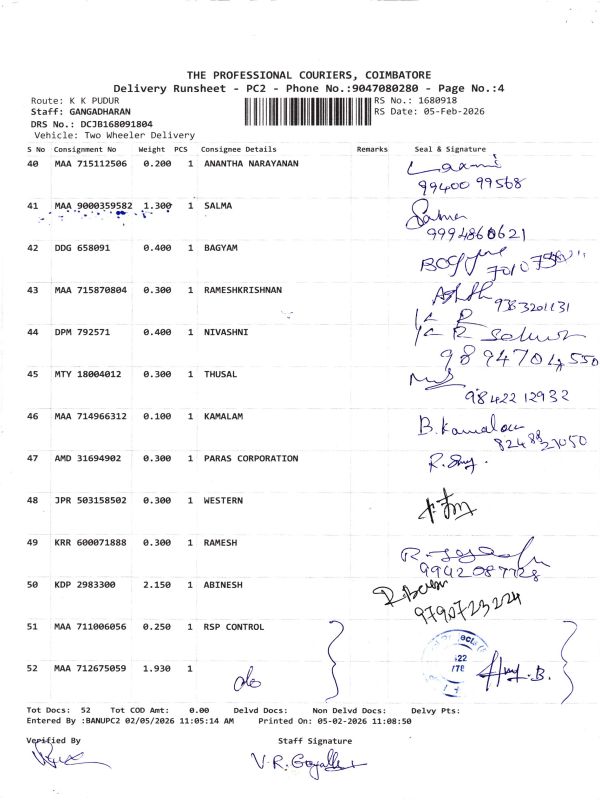 THE PROFESSIONAL COURIERS, COIMBATORE
Delivery Runsheet - PC2 - Phone No.:9047080280 - Page No.:4
Route: K K PUDUR RS No.: 1680918
Staff: GANGADHARAN RS Date: 05-Feb-2026
DRS No.: DCJB168091804
Vehicle: Two Wheeler Delivery
S No Consignment No Weight PCS Consignee Details Remarks Seal & Signature
40 MAA 715112506 0.200 1 ANANTHA NARAYANAN
99400 99568
41 MAA 9000359582 1.300 1 SALMA Salma
9994860621
42 DDG 658091 0.400 1 BAGYAM
43 MAA 715870804 0.300 1 RAMESHKRISHNAN
9383201131
44 DPM 792571 0.400 1 NIVASHNI
9894704550
45 MTY 18004012 0.300 1 THUSAL
98422 12932
46 MAA 714966312 0.100 1 KAMALAM B. Kamalam
47 AMD 31694902 0.300 1 PARAS CORPORATION
48 JPR 503158502 0.300 1 WESTERN
49 KRR 600071888 0.300 1 RAMESH
9942087728
50 KDP 2983300 2.150 1 ABINESH
9790723224
51 MAA 711006056 0.250 1 RSP CONTROL
52 MAA 712675059 1.930 1 do
Tot Docs: 52 Tot COD Amt: 0.00 Delvd Docs: Non Delvd Docs: Delvy Pts:
Entered By :BANUPC2 02/05/2026 11:05:14 AM Printed On: 05-02-2026 11:08:50
Verified By Staff Signature